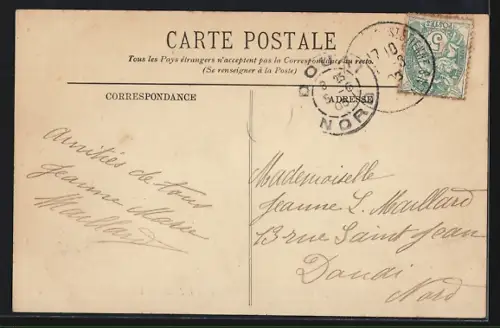 CARTE POSTALE
Tous les Pays étrangers n'acceptent pas la Correspondance au recto.
(Se renseigner à la Poste)
CORRESPONDANCE
ADRESSE
NORD
17 10
5
Amitiés de tous
Jeanne Marie
Maillard
Mademoiselle
Jeanne L. Maillard
13 rue Saint Jean
Douai
Nord